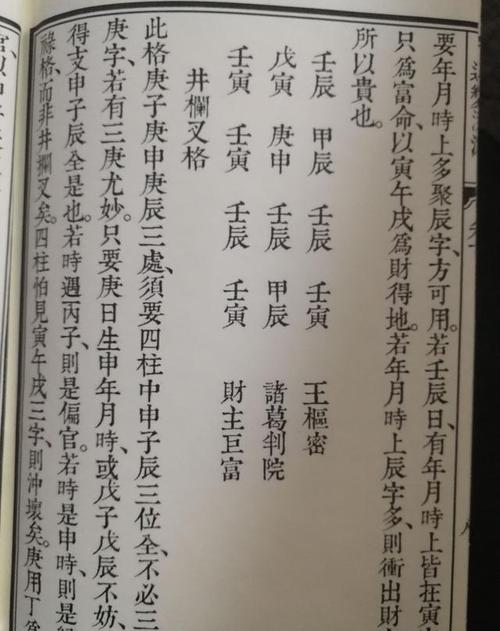 要年月時上多聚辰字、方可用。若壬辰日、有年月時上皆在寅
只爲富命、以寅午戌爲財得地。若年月時上辰字多、則衝出財
所以貴也。
壬辰 甲辰 壬辰 壬寅 王樞密
戊寅 庚申 壬辰 甲辰 諸葛判院
壬寅 壬寅 壬辰 壬寅 財主巨富
井欄叉格
此格庚子庚申庚辰三處、須要四柱中申子辰三位全、不必三
庚字、若有三庚尤妙。只要庚日生申年月時、或戊子戊辰不妨、
得支申子辰全是也。若時遇丙子、則是偏官。若時是申時、則是
祿格、而非井欄叉矣。四柱怕見寅午戌三字、則沖壞矣。庚用丁爲
官、以申子